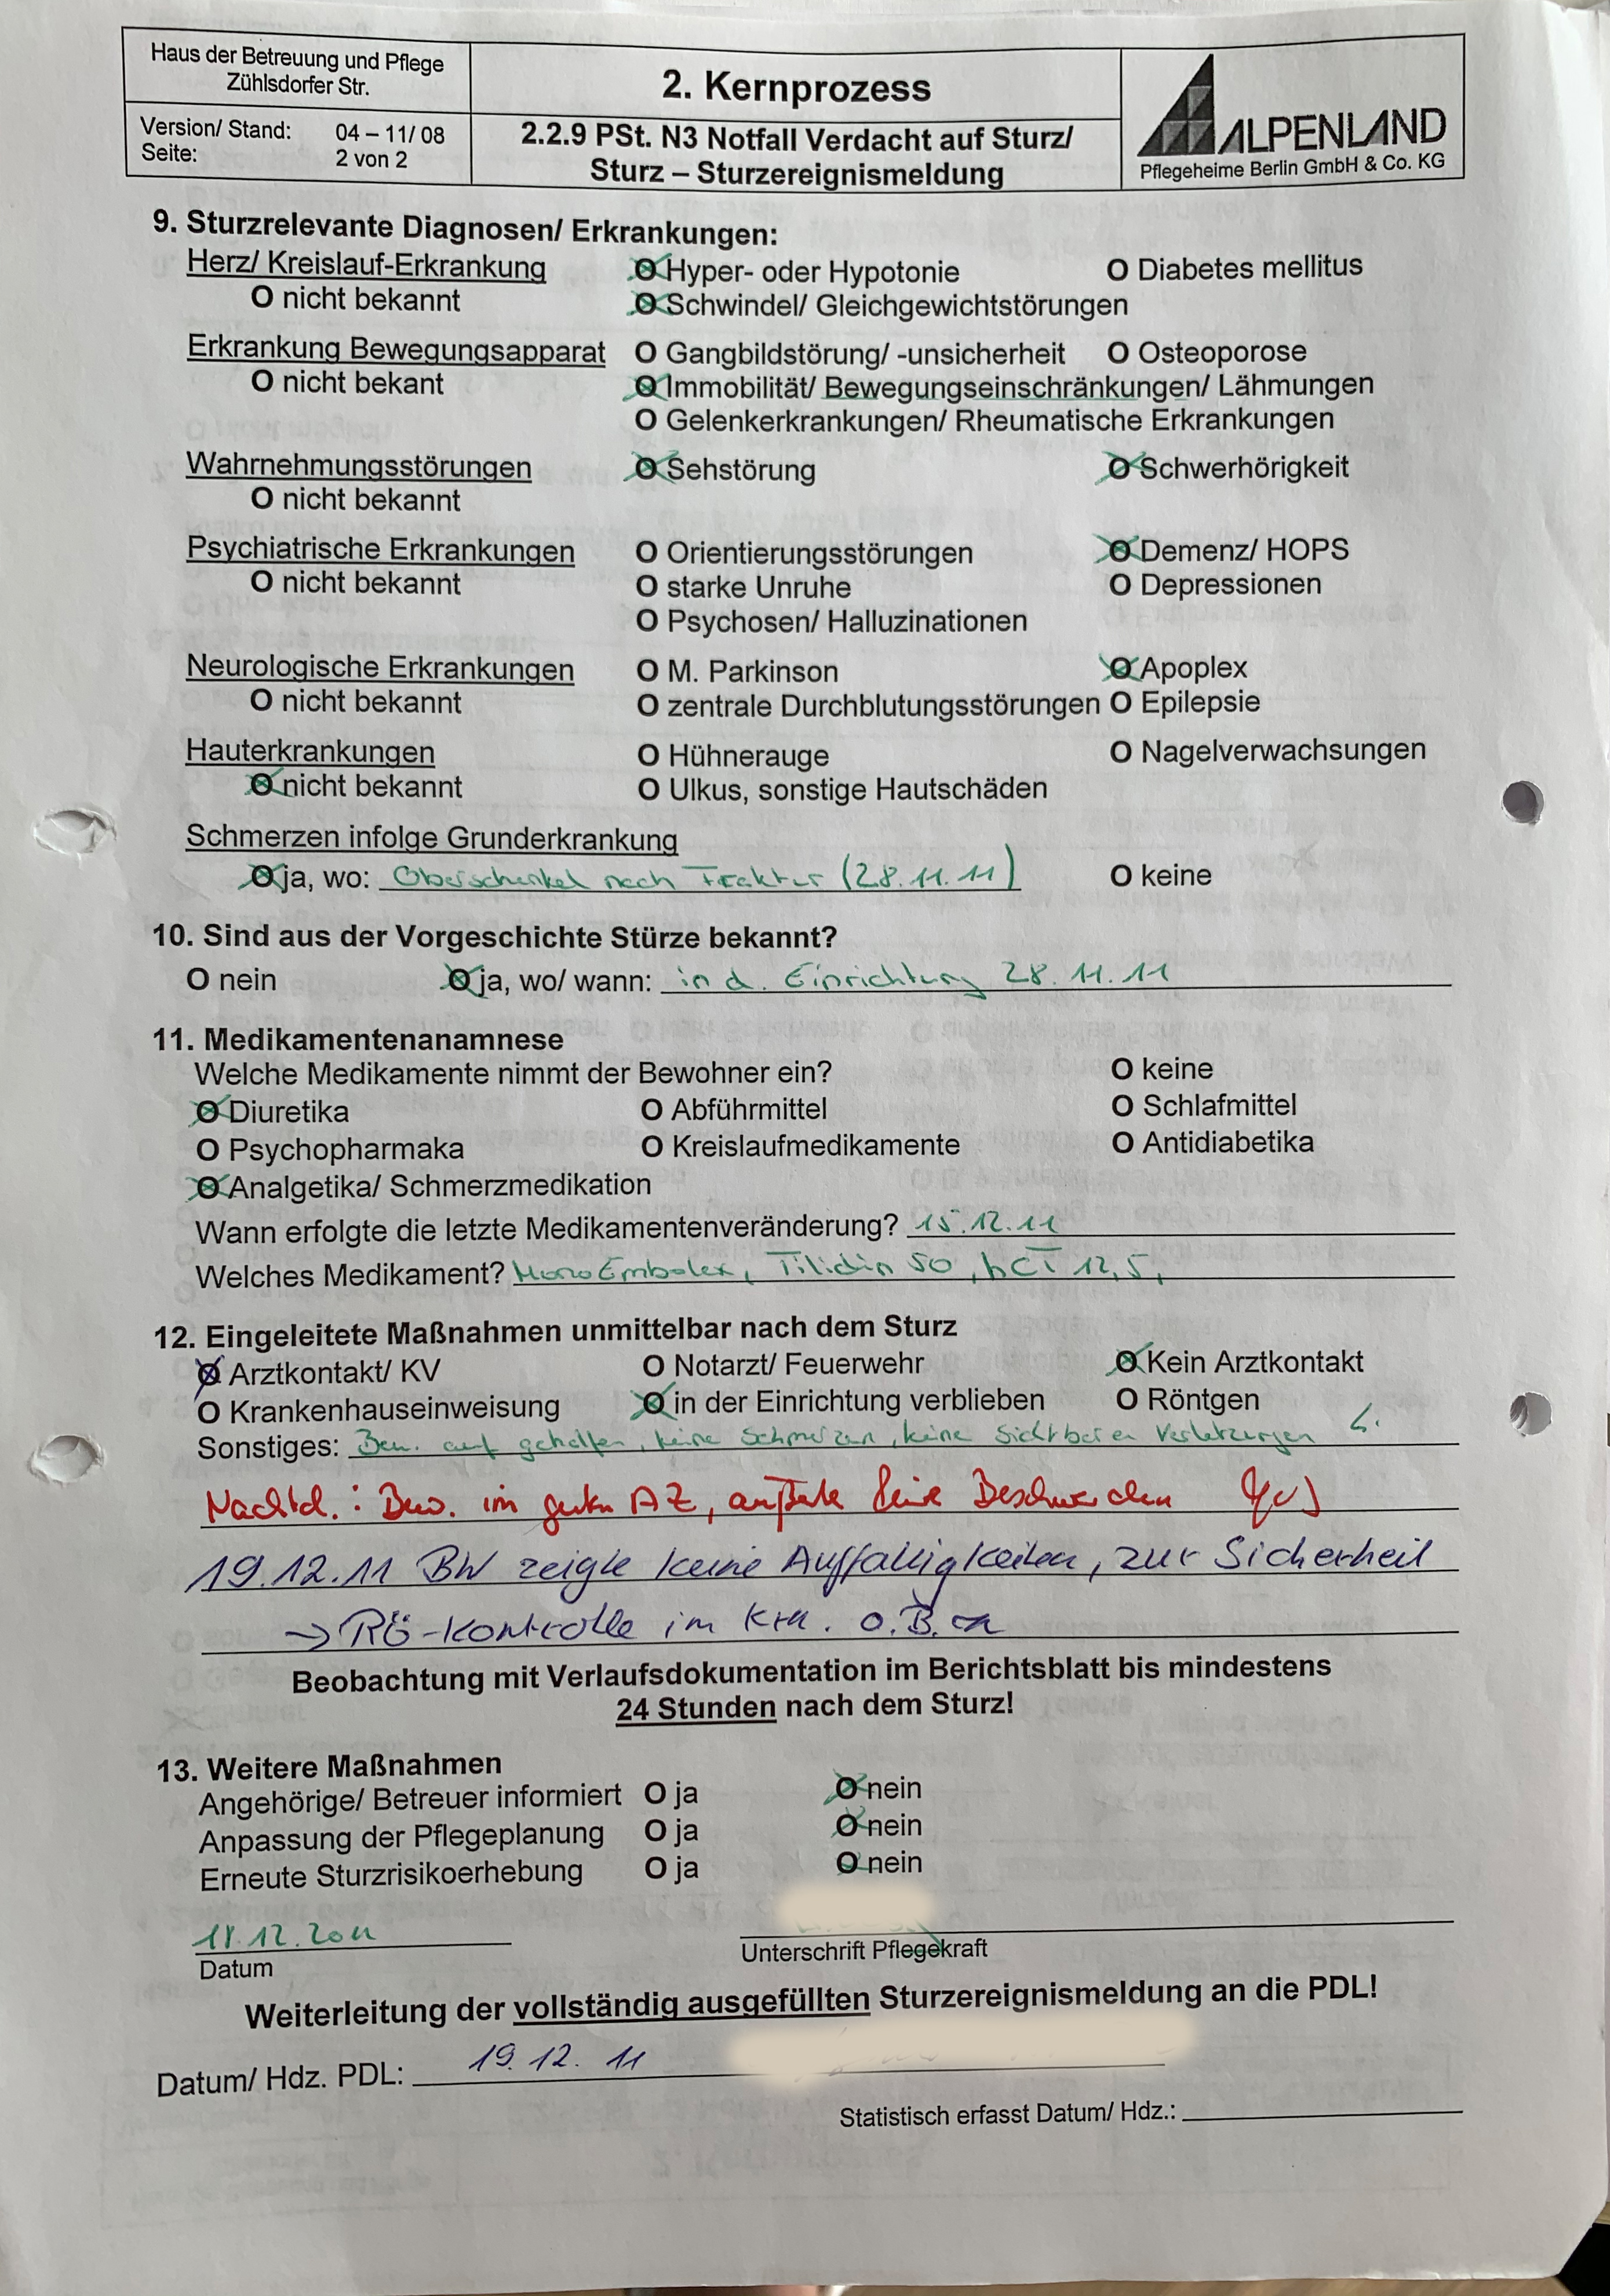 Haus der Betreuung und Pflege
Zühlsdorfer Str.
Version/ Stand: 04 – 11/ 08
Seite: 2 von 2
2. Kernprozess
2.2.9 PSt. N3 Notfall Verdacht auf Sturz/
Sturz – Sturzereignismeldung
ALPENLAND
Pflegeheime Berlin GmbH & Co. KG
9. Sturzrelevante Diagnosen/ Erkrankungen:
Herz/ Kreislauf-Erkrankung O Hyper- oder Hypotonie O Diabetes mellitus
O nicht bekannt O Schwindel/ Gleichgewichtstörungen
Erkrankung Bewegungsapparat O Gangbildstörung/ -unsicherheit O Osteoporose
O nicht bekant O Immobilität/ Bewegungseinschränkungen/ Lähmungen
O Gelenkerkrankungen/ Rheumatische Erkrankungen
Wahrnehmungsstörungen O Sehstörung O Schwerhörigkeit
O nicht bekannt
Psychiatrische Erkrankungen O Orientierungsstörungen O Demenz/ HOPS
O nicht bekannt O starke Unruhe O Depressionen
O Psychosen/ Halluzinationen
Neurologische Erkrankungen O M. Parkinson O Apoplex
O nicht bekannt O zentrale Durchblutungsstörungen O Epilepsie
Hauterkrankungen O Hühnerauge O Nagelverwachsungen
O nicht bekannt O Ulkus, sonstige Hautschäden
Schmerzen infolge Grunderkrankung
O ja, wo: Oberschenkel nach Fraktur (28.11.11) O keine
10. Sind aus der Vorgeschichte Stürze bekannt?
O nein O ja, wo/ wann: in d. Einrichtung 28.11.11
11. Medikamentenanamnese
Welche Medikamente nimmt der Bewohner ein? O keine
O Diuretika O Abführmittel O Schlafmittel
O Psychopharmaka O Kreislaufmedikamente O Antidiabetika
O Analgetika/ Schmerzmedikation
Wann erfolgte die letzte Medikamentenveränderung? 15.12.11
Welches Medikament? Mono Embolex, Tilidin 50, hCT 12,5,
12. Eingeleitete Maßnahmen unmittelbar nach dem Sturz
O Arztkontakt/ KV O Notarzt/ Feuerwehr O Kein Arztkontakt
O Krankenhauseinweisung O in der Einrichtung verblieben O Röntgen
Sonstiges: Bew. auf geholfen, keine Schmerzen, keine Sichtbaren Verletzungen
Nachtd.: Bew. im guten AZ, äußerte keine Beschwerden
19.12.11 BW zeigte keine Auffälligkeiten, zur Sicherheit
→ Rö-Kontrolle im Krh. o.B.
Beobachtung mit Verlaufsdokumentation im Berichtsblatt bis mindestens
24 Stunden nach dem Sturz!
13. Weitere Maßnahmen
Angehörige/ Betreuer informiert O ja O nein
Anpassung der Pflegeplanung O ja O nein
Erneute Sturzrisikoerhebung O ja O nein
18.12.2011
Datum Unterschrift Pflegekraft
Weiterleitung der vollständig ausgefüllten Sturzereignismeldung an die PDL!
Datum/ Hdz. PDL: 19.12.11
Statistisch erfasst Datum/ Hdz.: